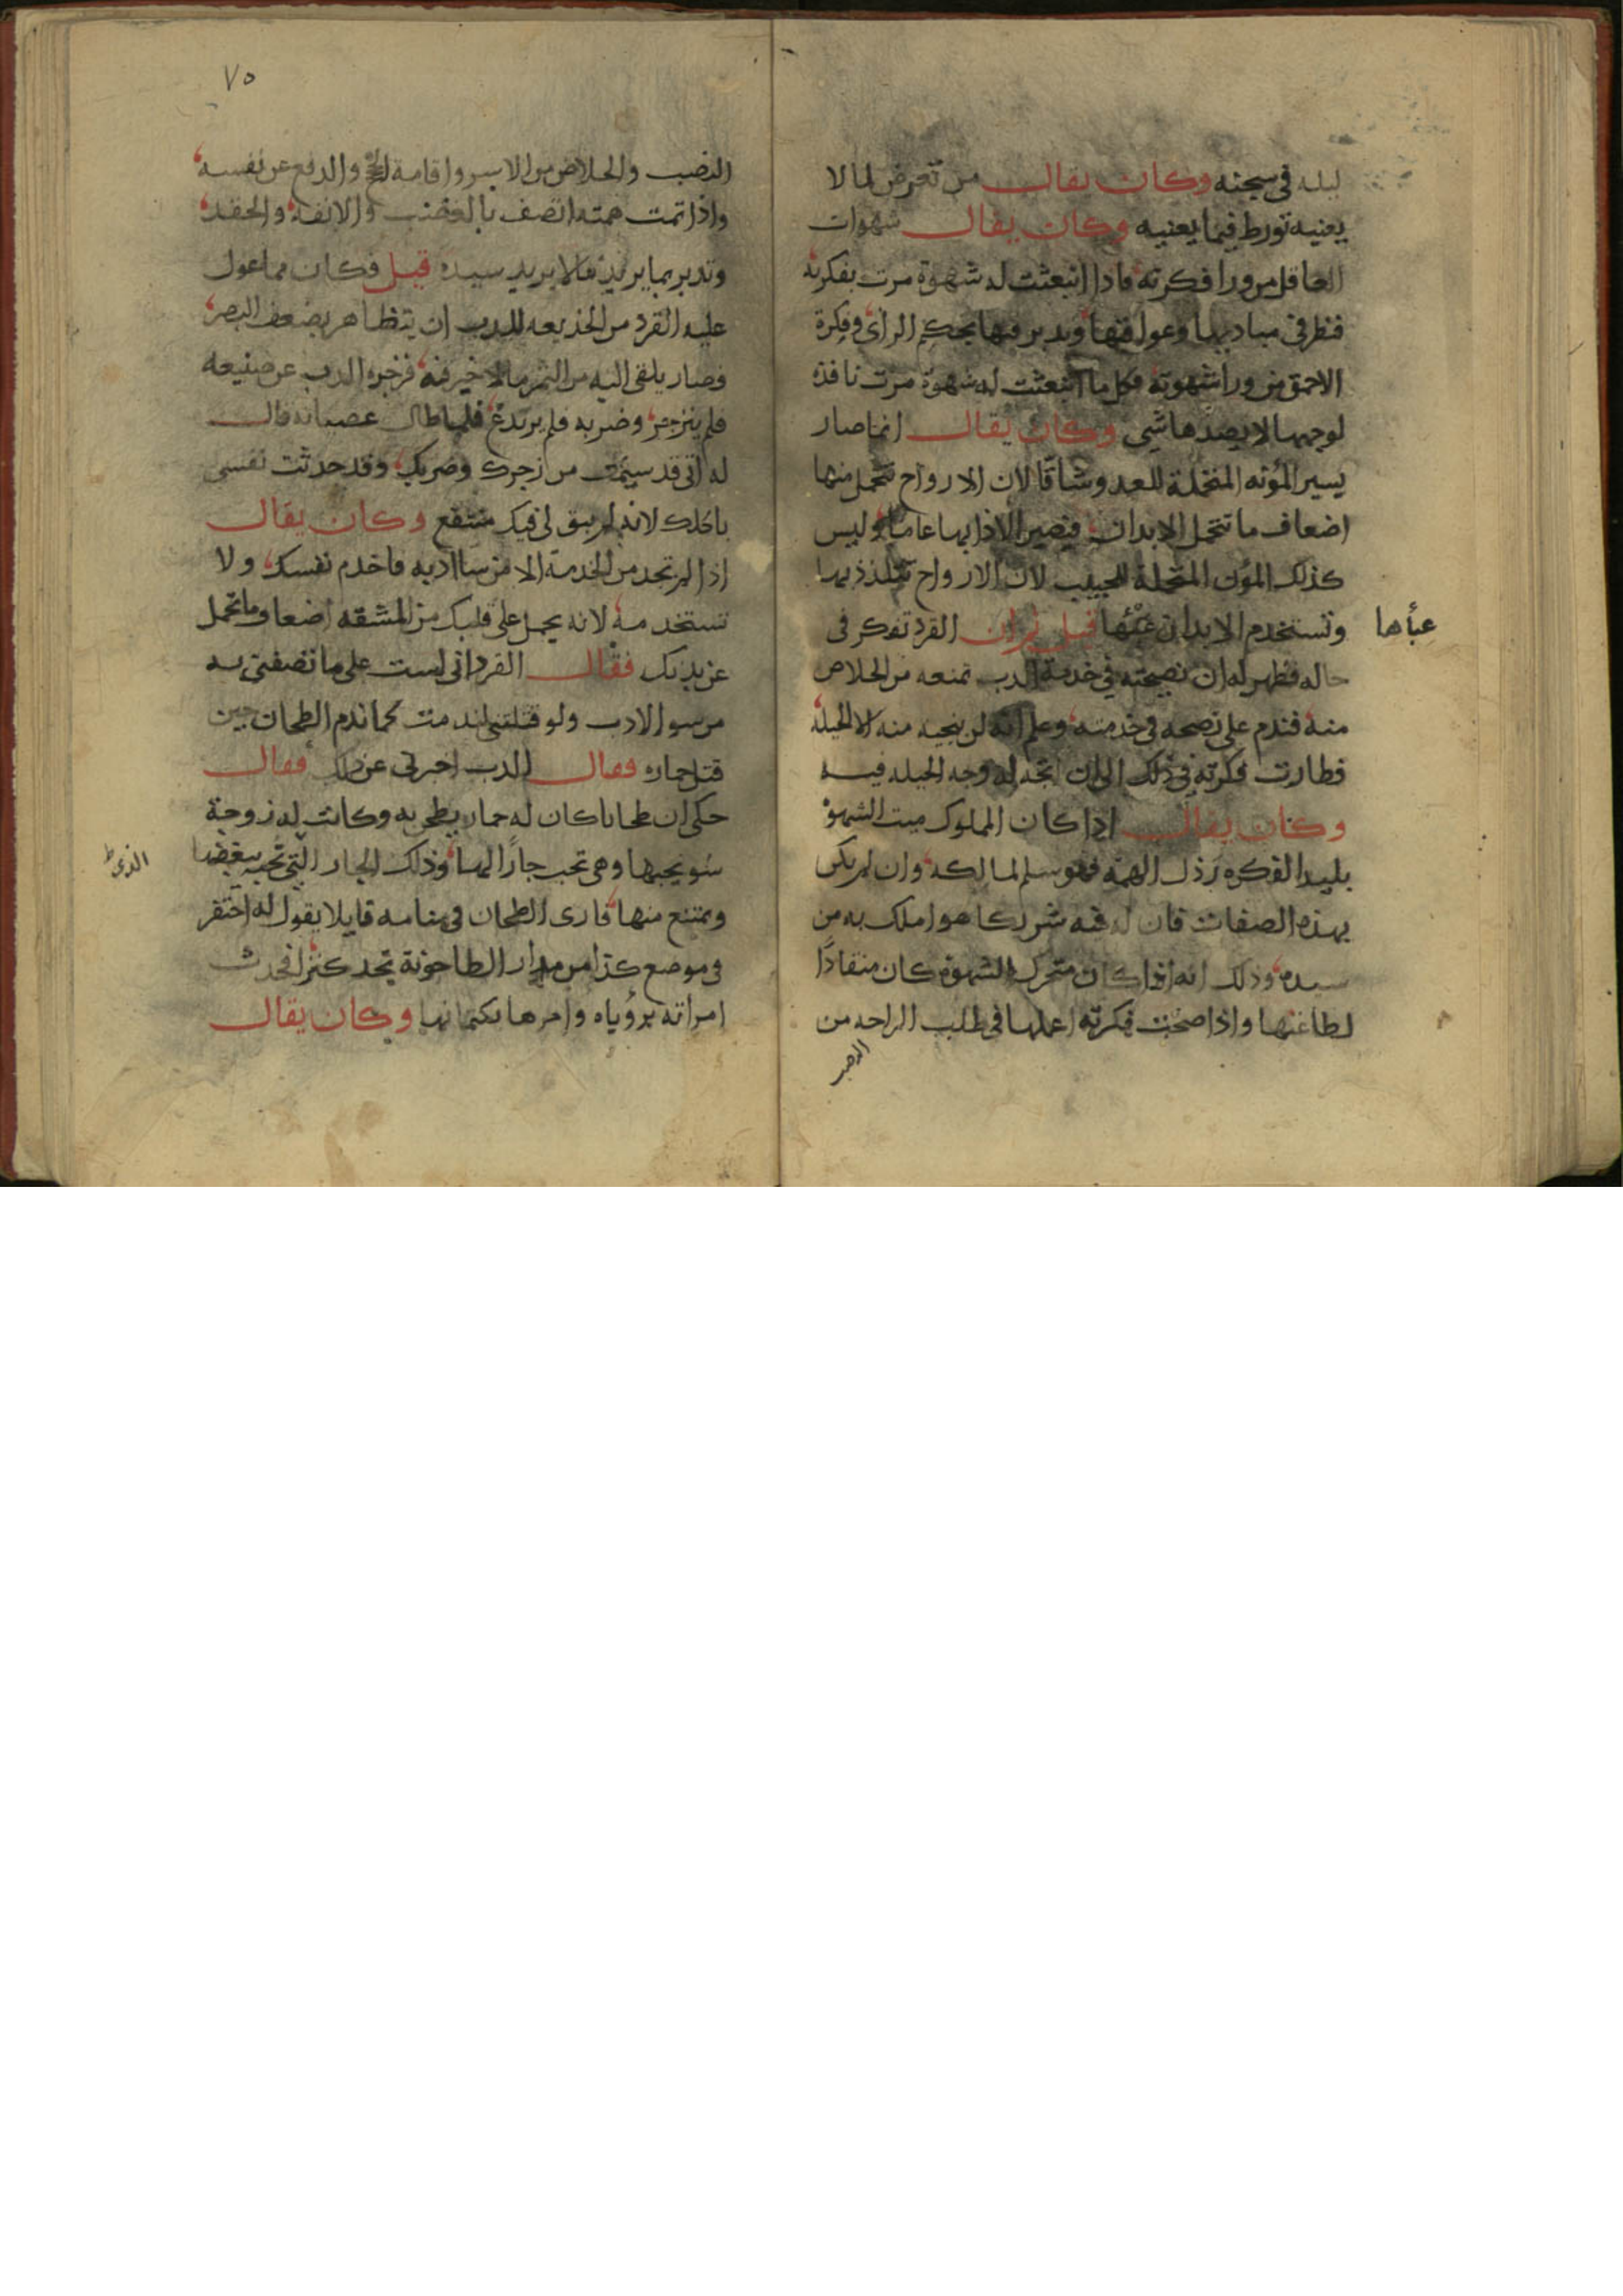 ليله في سجنه وكان يقال من تعرض لما لا
يعنيه تورط فيما يعنيه وكان يقال شهوات
العاقل من ورا فكرته فاذا انبعثت له شهوة مرت بفكرته
فنظر في مباديها وعواقبها وتدبر فيها بحكم الراى وفكرة
الاحمق من ورا شهوته فكل ما انبعثت له شهوة مرت نافذة
لوجهها لا يصدها شي وكان يقال انما صار
يسير المؤنه المتحملة للعدو شاقا لان الارواح تتحمل منها
اضعاف ما تتحمل الابدان فيصير الاذا بها عاما وليس
كذلك المؤن المتحملة للحبيب لان الارواح تتلذذ بها
وتستخدم الابدان عبئها قيل ثم ان القرد تفكر في
عبأها
حاله فظهر له ان نصيحته في خدمة الدب تمنعه من الخلاص
منه فندم على نصحه في خدمته وعلم انه لن ينجيه منه الا الحيلة
فطارت فكرته في ذلك الى ان اتجه له وجه الحيله فيه
وكان يقال اذا كان المملوك ميت الشهوة
بليد الفكره رذل الهمة فهو سلم لمالكه وان لم يكن
بهذه الصفات فان له فيه شريكا هو املك به من
سيده وذلك انه اذا كان متحرك الشهوة كان منقادا
لطاعتها واذا صحت فكرته اعملها في طلب الراحه من
النصب
٧٥
النصب والخلاص من الاسر واقامة الحجج والدفع عن نفسه
واذا تمت همته اتصف بالغضب والانفة والحقد
وتدبر بما يريد فالا يريد سيده قيل فكان مما عول
عليه القرد من الخديعه للدب ان يتظاهر بضعف البصر
فصار يلقي اليه من الثمر ما لا خير فيه فزجره الدب عن صنيعه
فلم ينزجر وضربه فلم يرتدع فلما طال عصيانه قال
له اني قد سيمت من زجرك وضربك وقد حدثت نفسي
باكلك لانه لم يبق لي فيك منتفع وكان يقال
اذا لم تجد من الخدمة الا من سا ادبه فاخدم نفسك ولا
تستخدمه لانه يحمل على قلبك من المشقه اضعاف ما تحمل
عن بدنك فقال القرد اني لست على ما تصفني به
من سو الادب ولو قتلتني لندمت كما ندم الطحان حين
قتل حماره فقال الدب اخبرني عن ذلك فقال
حكى ان طحانا كان له حمار يطحن به وكانت له زوجة
سو يحبها وهي تحب جارا لها وذلك الجار التي تحبه يبغضها
الذى ط
ويمتنع منها فارى الطحان في منامه قايلا يقول له احتفر
في موضع كذا من مدار الطاحونة تجد كنزا فحدث
امراته برؤياه وامرها بكتمانها وكان يقال